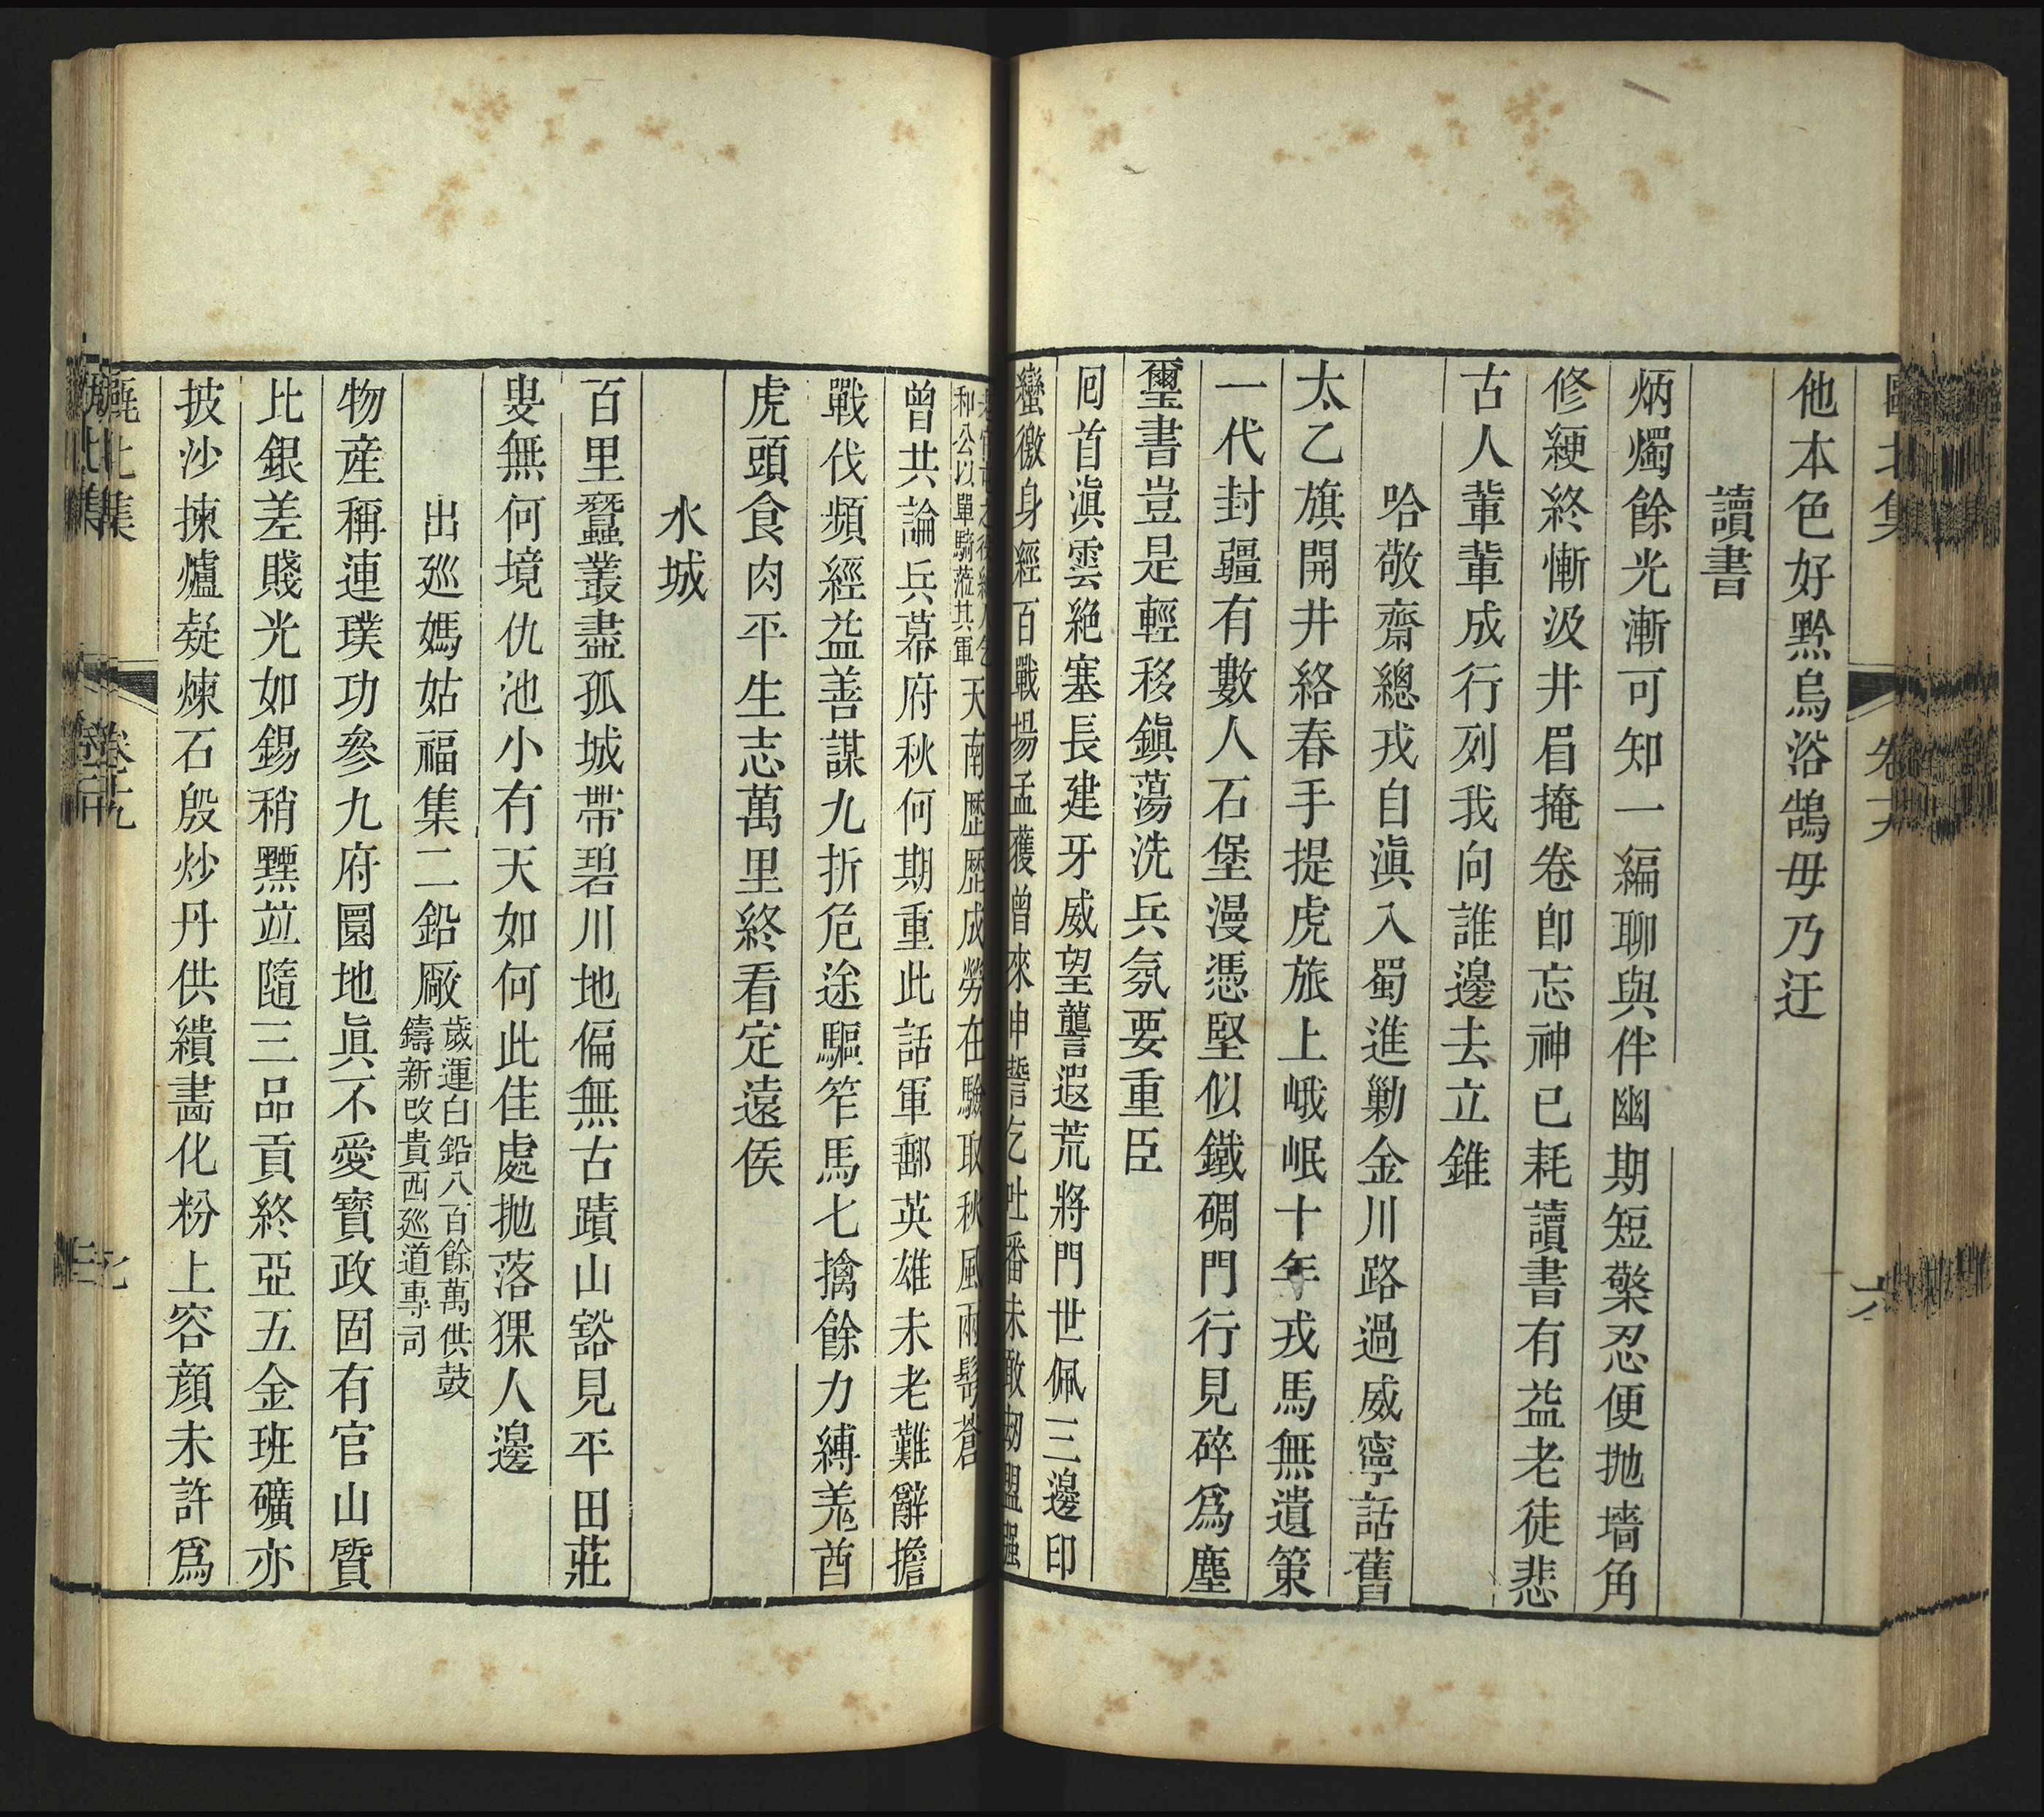 他本色好黔烏浴鵠毋乃迂
讀書
炳燭餘光漸可知一編聊與伴幽期短檠忍便拋墻角
修綆終慚汲井眉掩卷卽忘神已耗讀書有益老徒悲
古人輩輩成行列我向誰邊去立錐
哈敬齋總戎自滇入蜀進勦金川路過威寧話舊
太乙旗開井絡春手提虎旅上峨岷十年戎馬無遺策
一代封疆有數人石堡漫憑堅似鐵碉門行見碎爲塵
璽書豈是輕移鎭蕩洗兵氛要重臣
囘首滇雲絶塞長建牙威望讋遐荒將門世佩三邊印
蠻徼身經百戰場孟獲曾來申誓乞吐番未敢刧盟强
和公以單騎蒞其軍天南歴歴成勞在驗取秋風兩鬂蒼
曾共論兵幕府秋何期重此話軍郵英雄未老難辭擔
戰伐頻經益善謀九折危途驅笮馬七擒餘力縛羗酋
虎頭食肉平生志萬里終看定遠侯
水城
百里蠶叢盡孤城帶碧川地偏無古蹟山豁見平田莊
叟無何境仇池小有天如何此佳處拋落猓人邊
出廵媽姑福集二鉛厰歲運白鉛八百餘萬供鼓
鑄新改貴西廵道專司
物産稱連璞功參九府圜地眞不愛寳政固有官山質
比銀差賤光如錫稍黷竝隨三品貢終亞五金班礦亦
披沙揀爐凝煉石殷炒丹供繢畵化粉上容顔未許爲